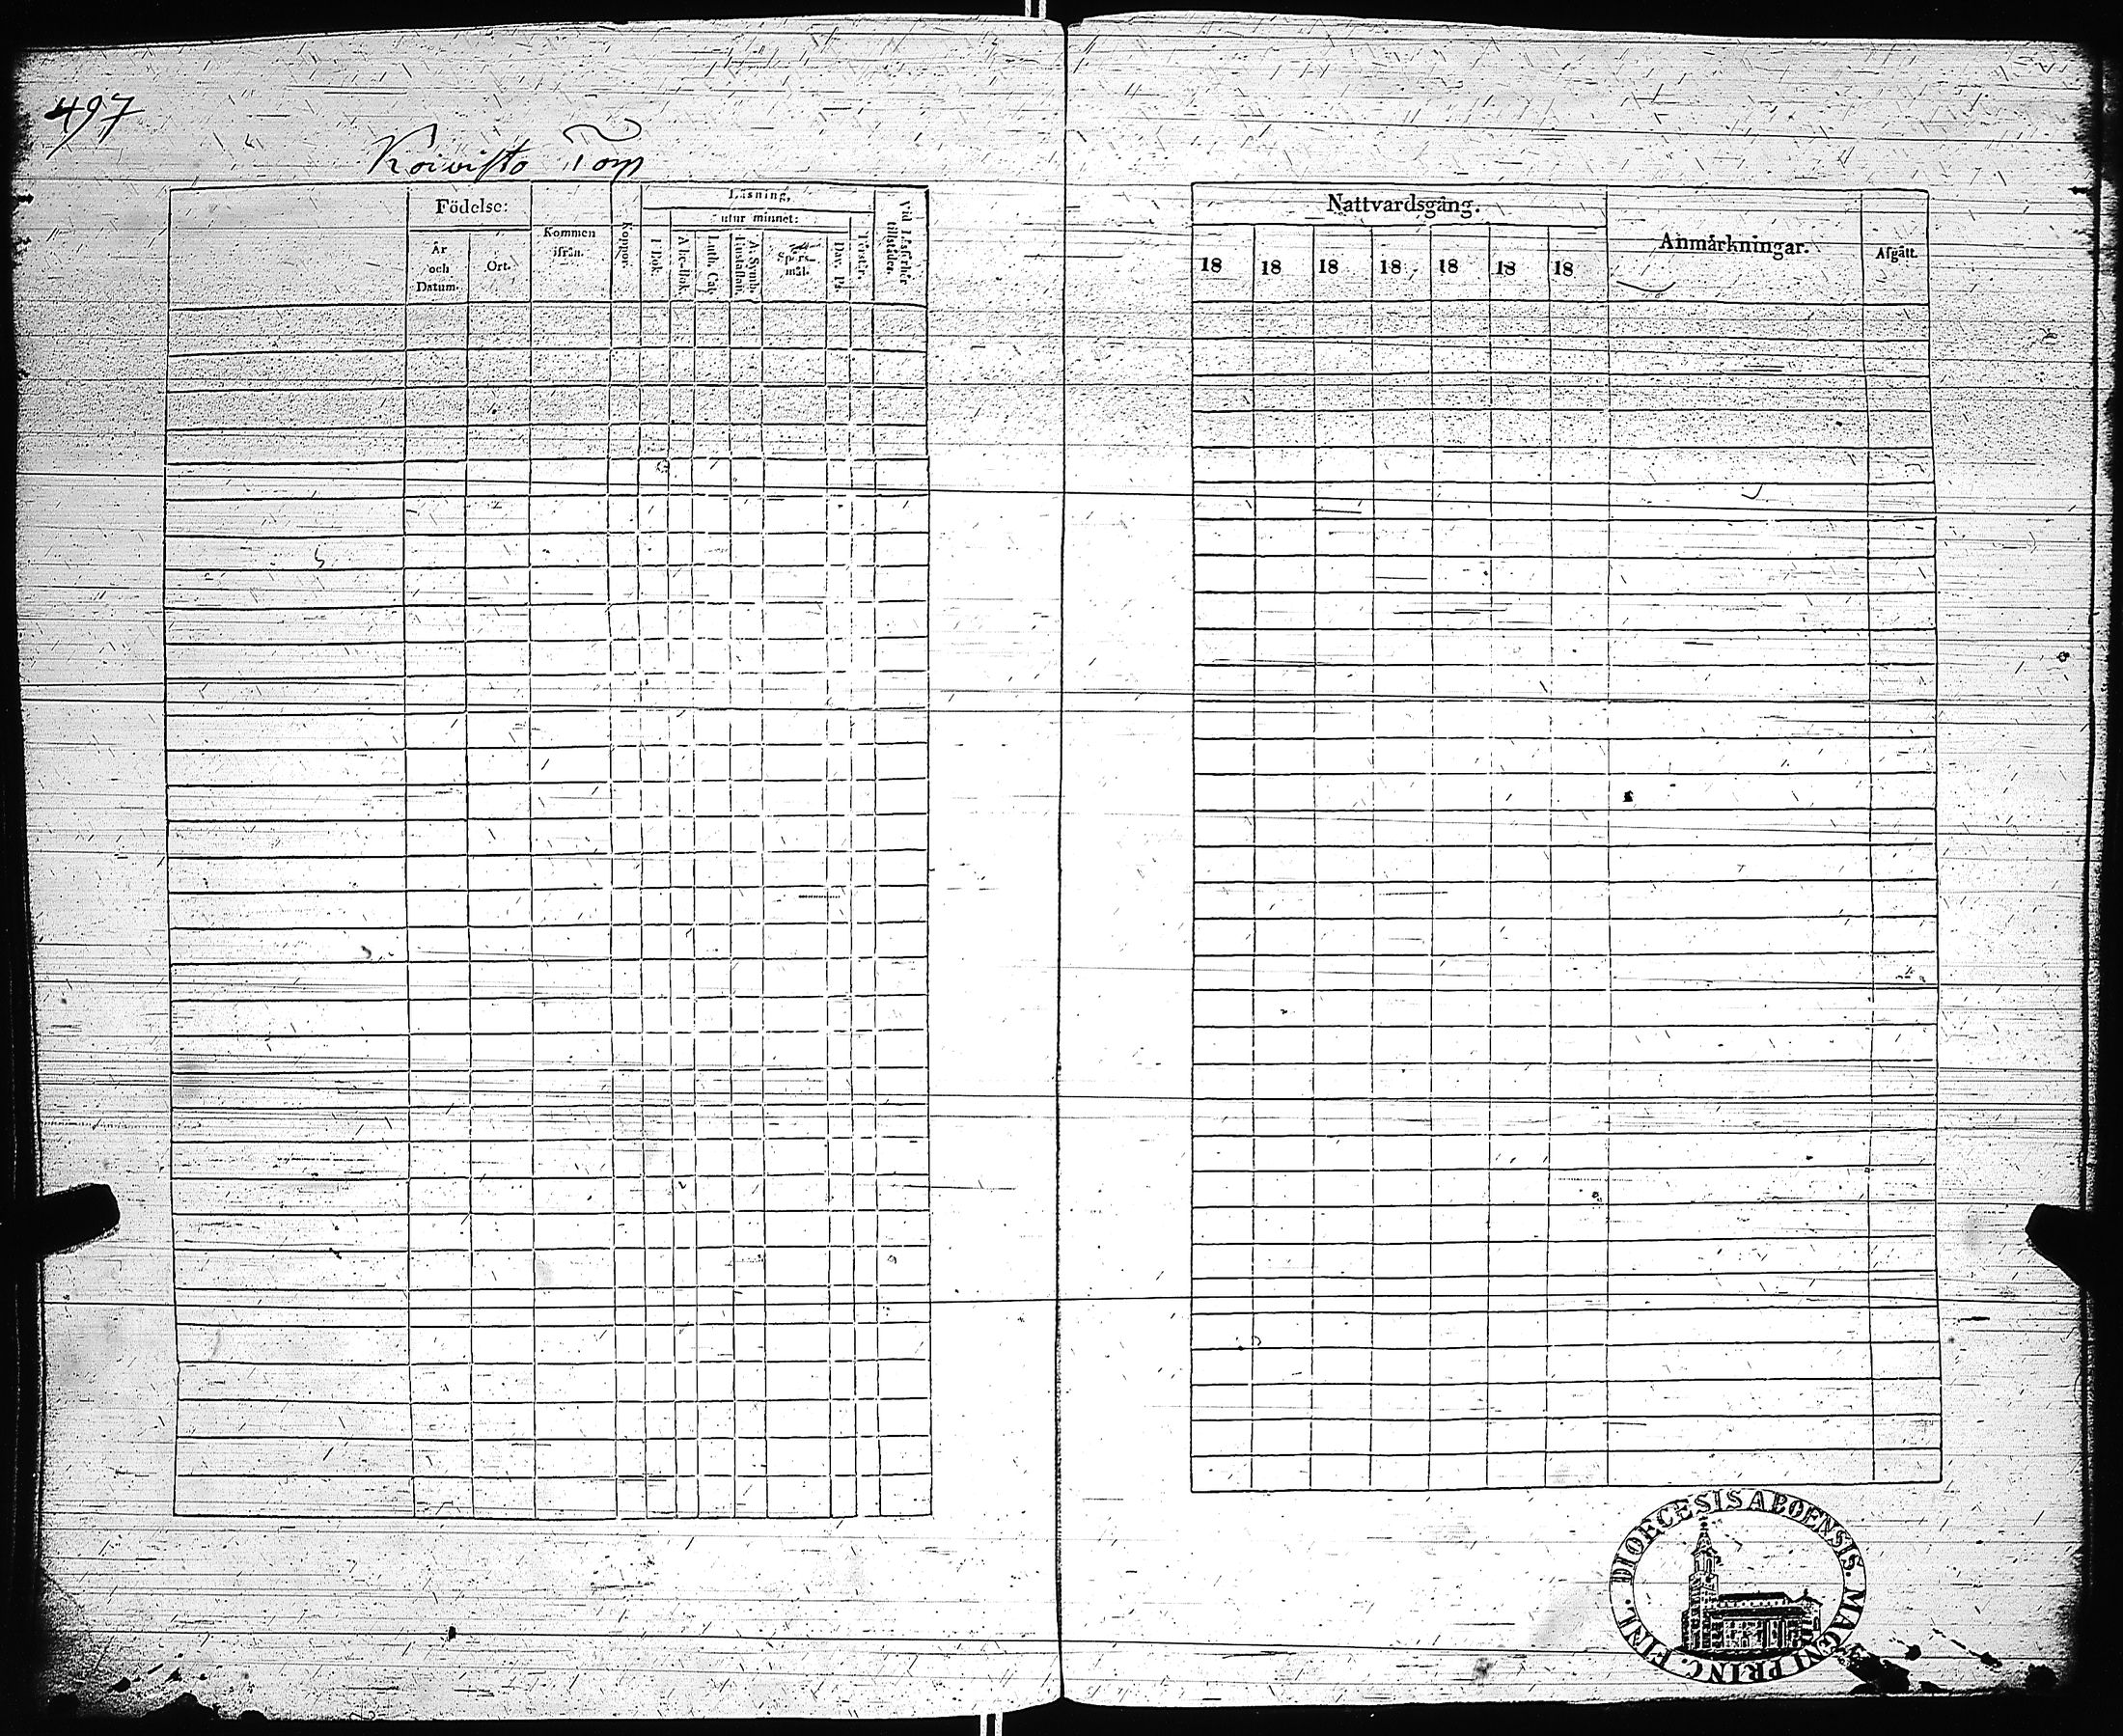 497
Koivisto Torp
Födelse:
År och Datum.
Ort.
Kommen ifrån.
Koppor.
Läsning,
utur minnet:
I Bok.
A-b-c-Bok.
Luth. Cat.
Hustaflan.
A. Symb.
Spörs-mål.
Dav. Ps.
Förstår.
Vid Läsförhör tillstädes.
Nattvardsgång.
18 18 18 18 18 18 18
Anmärkningar.
Afgått.
DIOECESIS ABOENSIS. MAGNI PRINC. FINL.